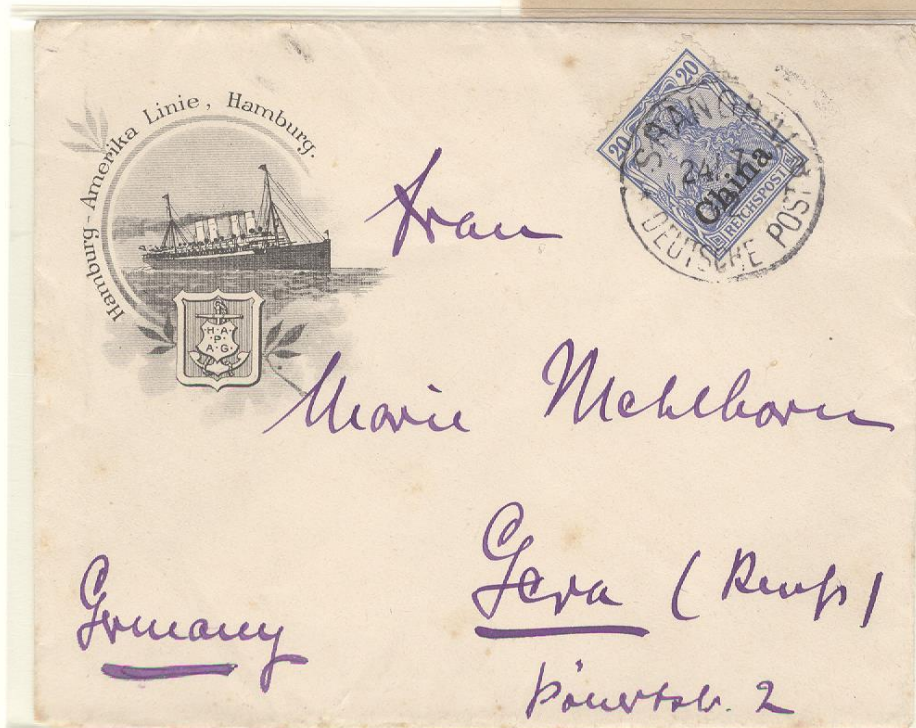 Hamburg-Amerika Linie, Hamburg.
H·A·
·P·
A·G·
20 20
China
REICHSPOST
24/
DEUTSCHE POST
Frau
Marie Mehlhorn
Gera (Reuß)
Germany